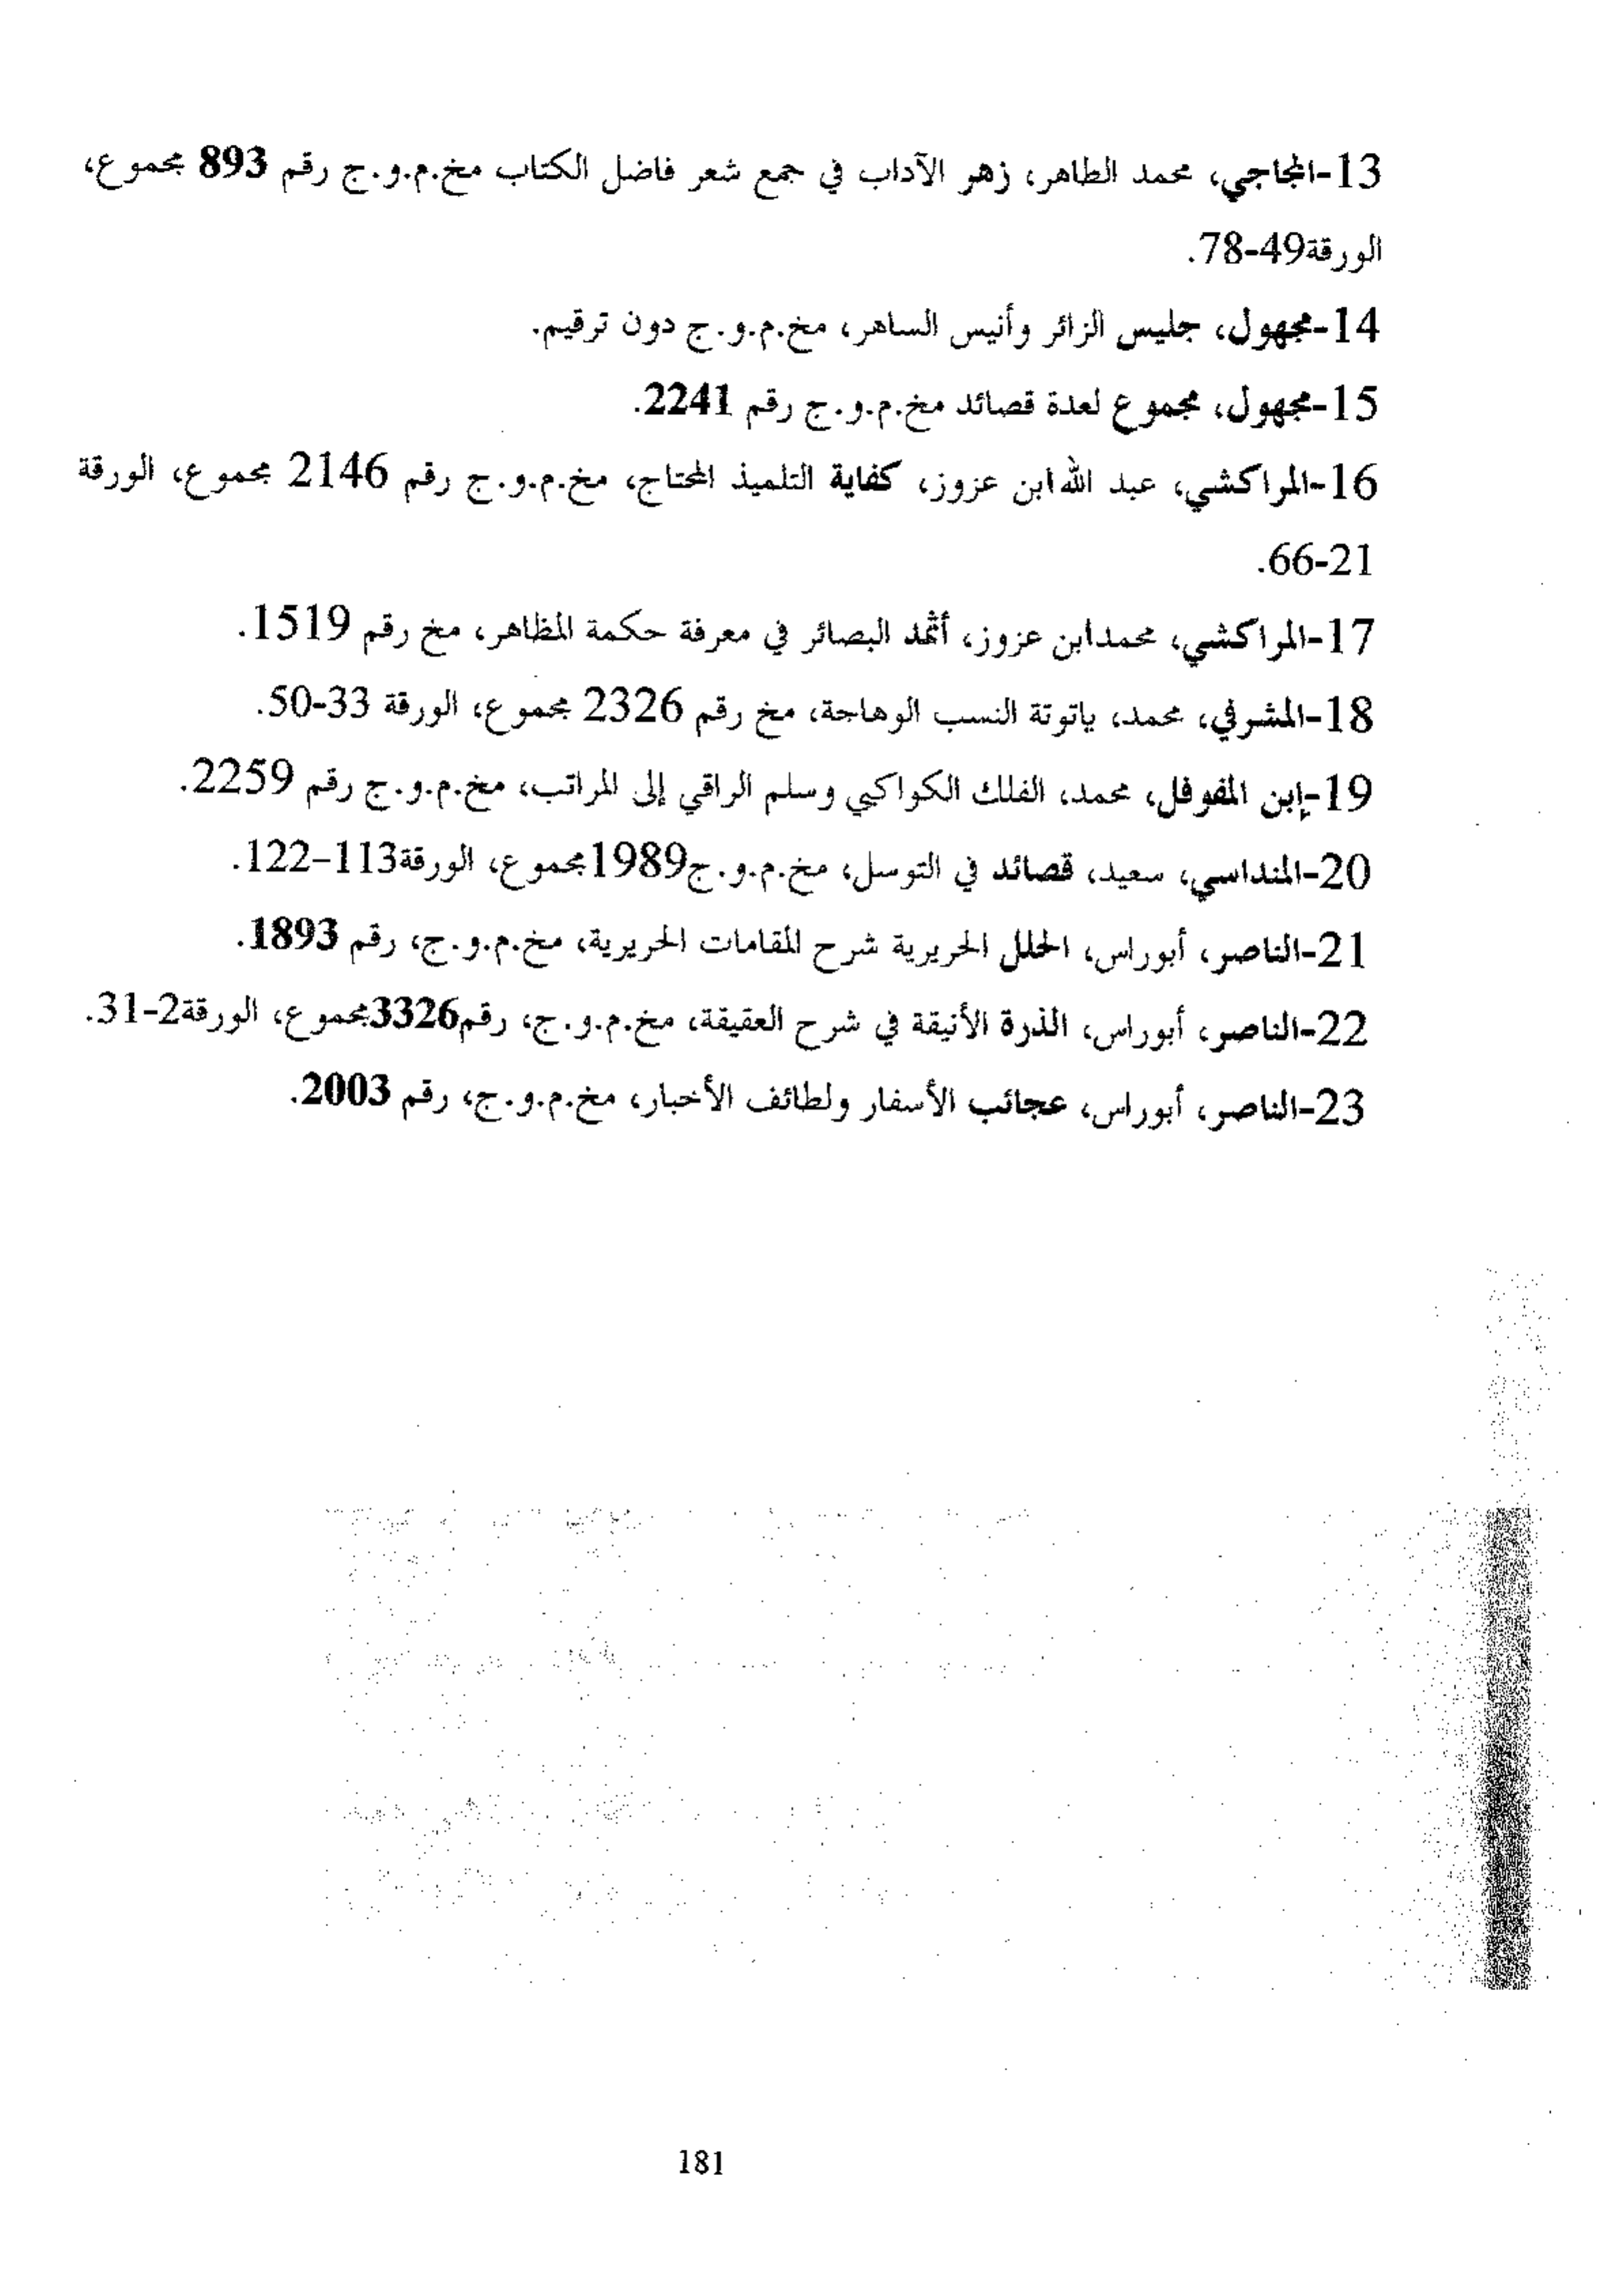 13-المجاجي، محمد الطاهر، زهر الآداب في جمع شعر فاضل الكتاب مخ.م.و.ج رقم 893 مجموع،
الورقة49-78.
14-مجهول، جليس الزائر وأنيس الساهر، مخ.م.و.ج دون ترقيم.
15-مجهول، مجموع لعدة قصائد مخ.م.و.ج رقم 2241.
16-المراكشي، عبد الله ابن عزوز، كفاية التلميذ المحتاج، مخ.م.و.ج رقم 2146 مجموع، الورقة
21-66.
17-المراكشي، محمدابن عزوز، أثمد البصائر في معرفة حكمة المظاهر، مخ رقم 1519.
18-المشرفي، محمد، ياتوتة النسب الوهاجة، مخ رقم 2326 مجموع، الورقة 33-50.
19-إبن المفوفل، محمد، الفلك الكواكبي وسلم الراقي إلى المراتب، مخ.م.و.ج رقم 2259.
20-المنداسي، سعيد، قصائد في التوسل، مخ.م.و.ج1989مجموع، الورقة113-122.
21-الناصر، أبوراس، الحلل الحريرية شرح المقامات الحريرية، مخ.م.و.ج، رقم 1893.
22-الناصر، أبوراس، الذرة الأنيقة في شرح العقيقة، مخ.م.و.ج، رقم3326مجموع، الورقة2-31.
23-الناصر، أبوراس، عجائب الأسفار ولطائف الأخبار، مخ.م.و.ج، رقم 2003.
181